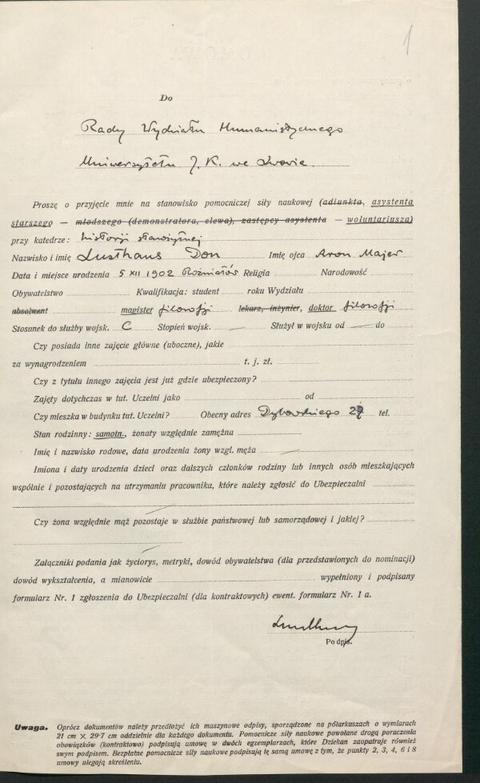 1
Do
Rady Wydziału Humanistycznego
Uniwersytetu J. K. we Lwowie.
Proszę o przyjęcie mnie na stanowisko pomocniczej siły naukowej (adiunkta, asystenta
starszego — młodszego (demonstratora, elewa), zastępcy asystenta — woluntariusza)
przy katedrze: historji starożytnej
Nazwisko i imię Lusthaus Don Imię ojca Aron Majer
Data i miejsce urodzenia 5 XII 1902 Rożniatów Religia Narodowość
Obywatelstwo Kwalifikacja: student roku Wydziału
absolwent magister filozofji lekarz, inżynier, doktor filozofji
Stosunek do służby wojsk. C Stopień wojsk. — Służył w wojsku od — do
Czy posiada inne zajęcie główne (uboczne), jakie
za wynagrodzeniem t. j. zł.
Czy z tytułu innego zajęcia jest już gdzie ubezpieczony?
Zajęty dotychczas w tut. Uczelni jako od
Czy mieszka w budynku tut. Uczelni? Obecny adres Dybowskiego tel.
Stan rodzinny: samotn., żonaty względnie zamężna
Imię i nazwisko rodowe, data urodzenia żony wzgl. męża
Imiona i daty urodzenia dzieci oraz dalszych członków rodziny lub innych osób mieszkających
wspólnie i pozostających na utrzymaniu pracownika, które należy zgłosić do Ubezpieczalni
Czy żona względnie mąż pozostaje w służbie państwowej lub samorządowej i jakiej?
Załączniki podania jak życiorys, metryki, dowód obywatelstwa (dla przedstawionych do nominacji)
dowód wykształcenia, a mianowicie wypełniony i podpisany
formularz Nr. 1 zgłoszenia do Ubezpieczalni (dla kontraktowych) ewent. formularz Nr. 1 a.
Lusthaus
Podpis.
Uwaga. Oprócz dokumentów należy przedłożyć ich maszynowe odpisy, sporządzone na półarkuszach o wymiarach
21 cm × 29·7 cm oddzielnie dla każdego dokumentu. Pomocnicze siły naukowe powołane drogą poruczenia
obowiązków (kontraktowo) podpisują umowę w dwóch egzemplarzach, które Dziekan zaopatruje również
swym podpisem. Bezpłatne pomocnicze siły naukowe podpisują tę samą umowę z tym, że punkty 2, 3, 4, 6 i 8
umowy ulegają skreśleniu.